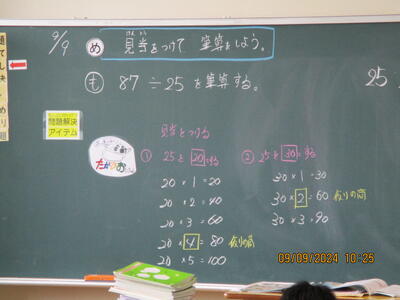 9/9
め 見当をつけて 筆算をしよう。
も 87 ÷ 25 を筆算する。
25
問題解決
アイテム
見当をつける
① 25を20とする
20 × 1 = 20
20 × 2 = 40
20 × 3 = 60
20 × 4 = 80
20 × 5 = 100
② 25を30とする
30 × 1 = 30
30 × 2 = 60
30 × 3 = 90
09/09/2024 10:25